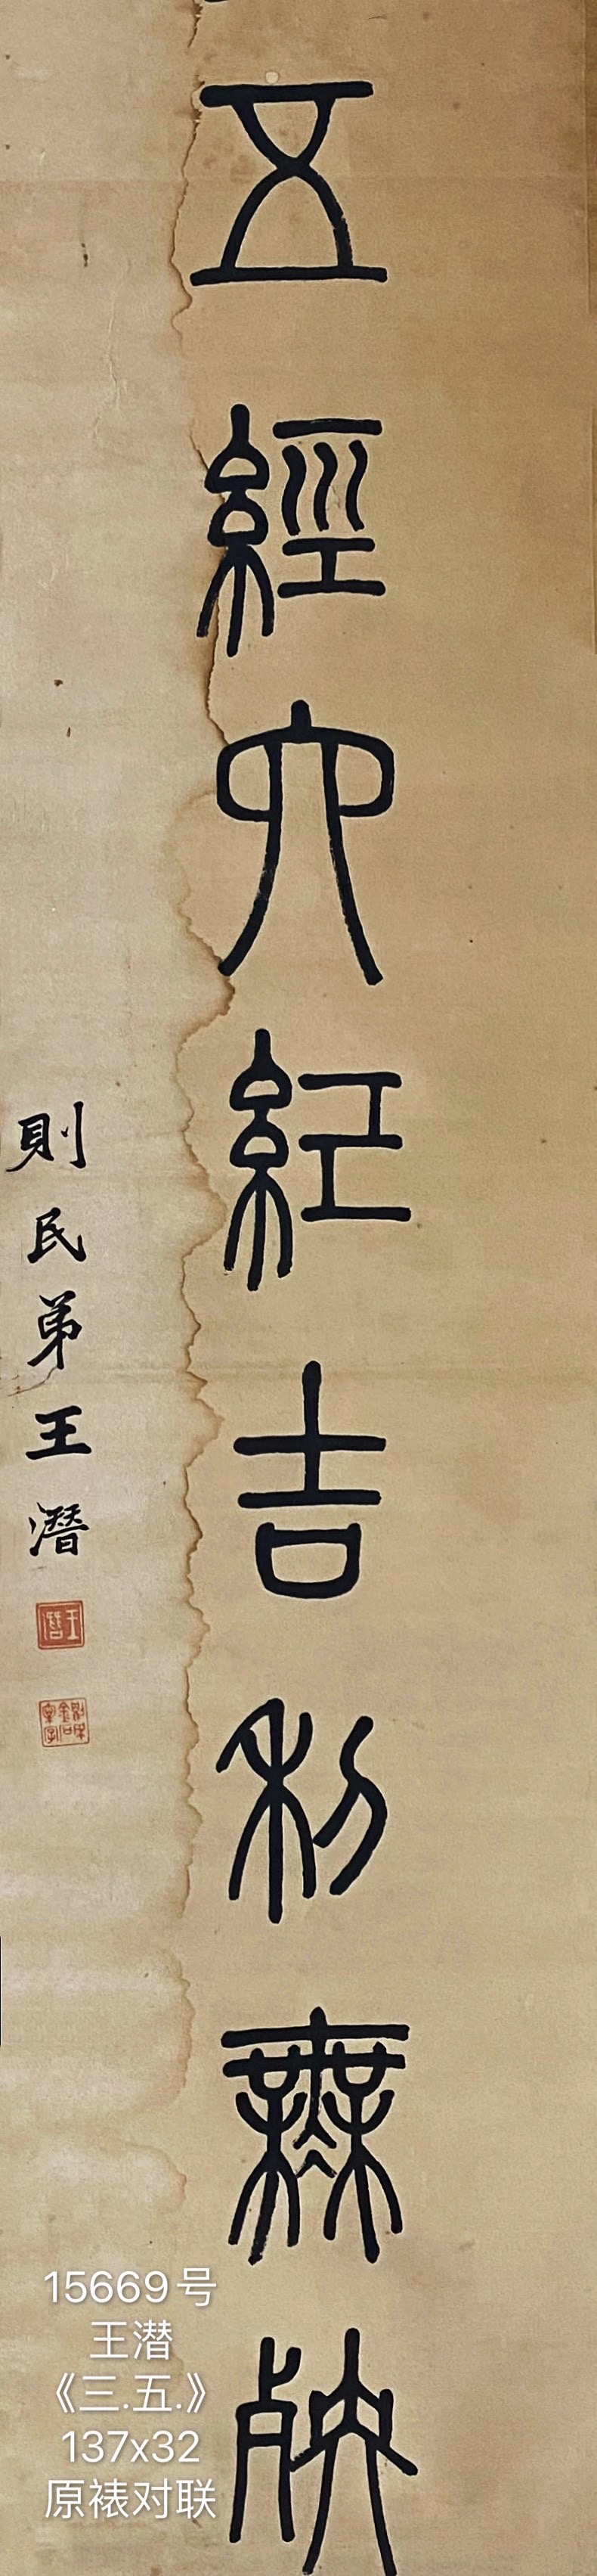 五經六紅吉利無殃
則民弟王潛
王潛
15669号
王潜
《三.五.》
137x32
原裱对联